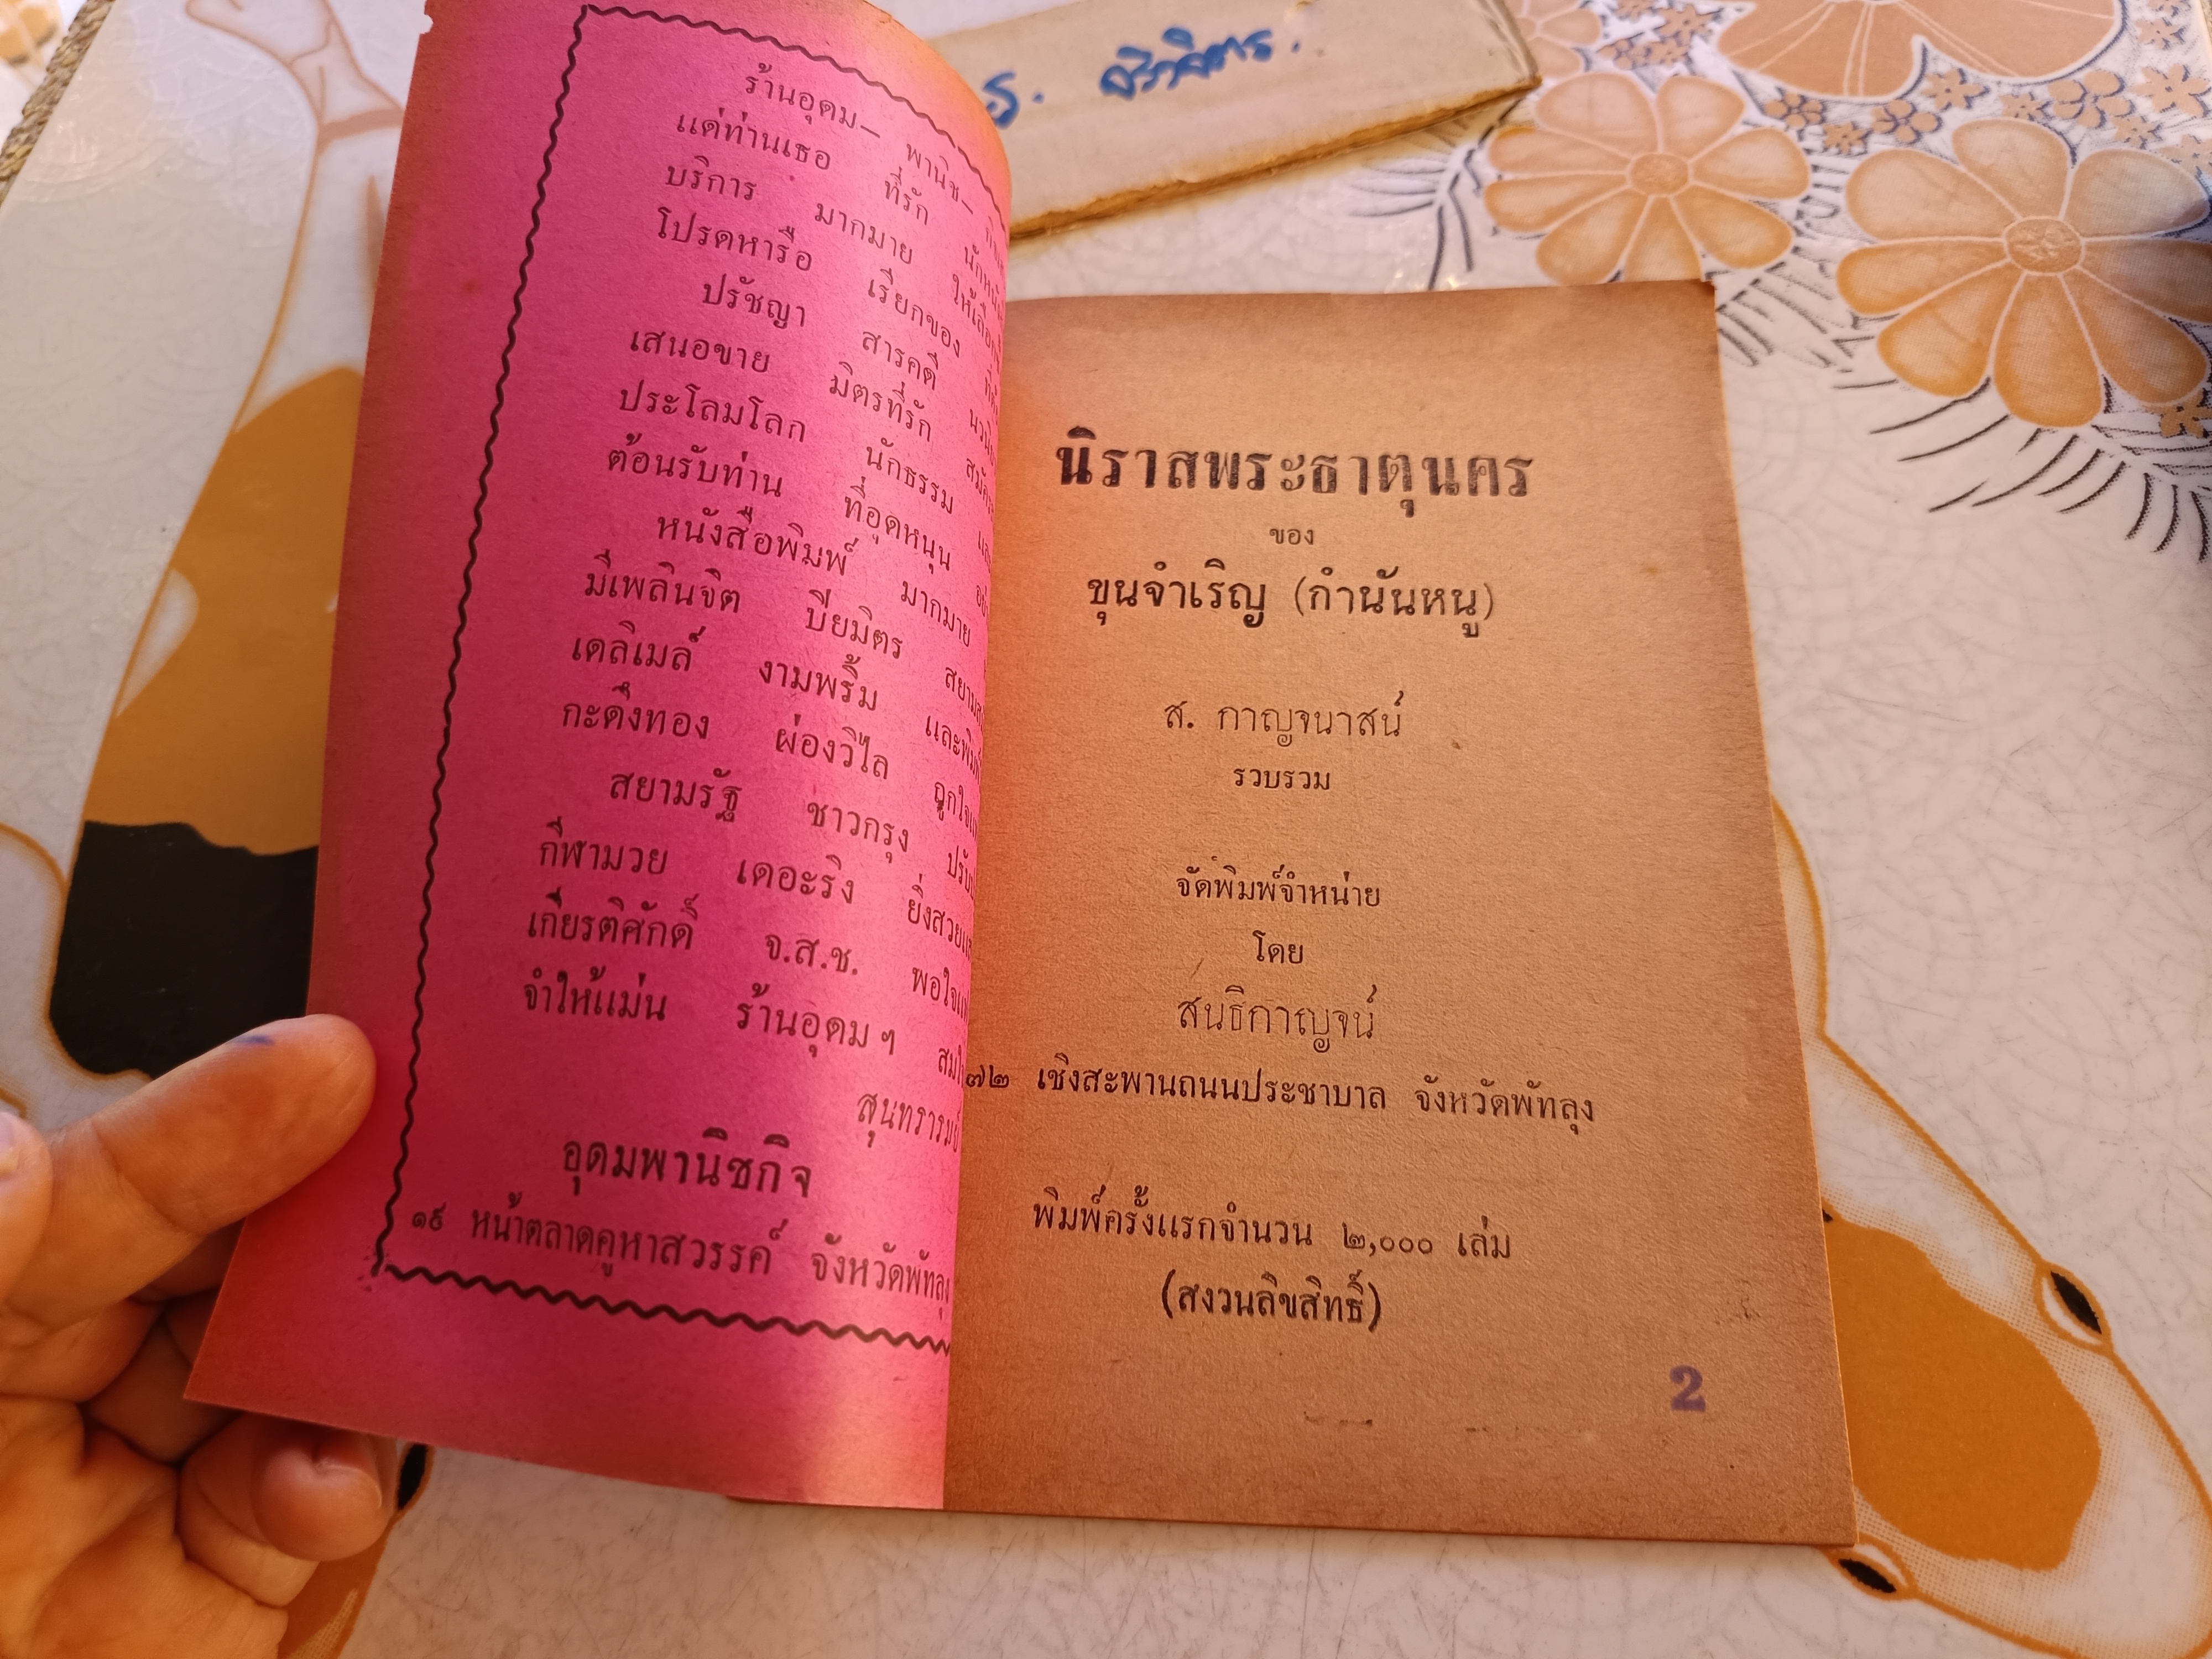 ร. จิราจิตร.
ร้านอุดม— พานิช—
แด่ท่านเธอ ที่รัก
บริการ มากมาย
โปรดหารือ เรียกของ
ปรัชญา สารคดี
เสนอขาย มิตรที่รัก
ประโลมโลก นักธรรม
ต้อนรับท่าน ที่อุดหนุน
หนังสือพิมพ์ มากมาย
มีเพลินจิต ปิยมิตร
เดลิเมล์ งามพริ้ม
กะดึงทอง ผ่องวิไล
สยามรัฐ ชาวกรุง
กีฬามวย เดอะริง
เกียรติศักดิ์ จ.ส.ช.
จำให้แม่น ร้านอุดม ฯ
อุดมพานิชกิจ
๑๙ หน้าตลาดคูหาสวรรค์ จังหวัดพัทลุง
นิราสพระธาตุนคร
ของ
ขุนจำเริญ (กำนันหนู)
ส. กาญจนาสน์
รวบรวม
จัดพิมพ์จำหน่าย
โดย
สนธิกาญจน์
๗๒ เชิงสะพานถนนประชาบาล จังหวัดพัทลุง
พิมพ์ครั้งแรกจำนวน ๒,๐๐๐ เล่ม
(สงวนลิขสิทธิ์)
2